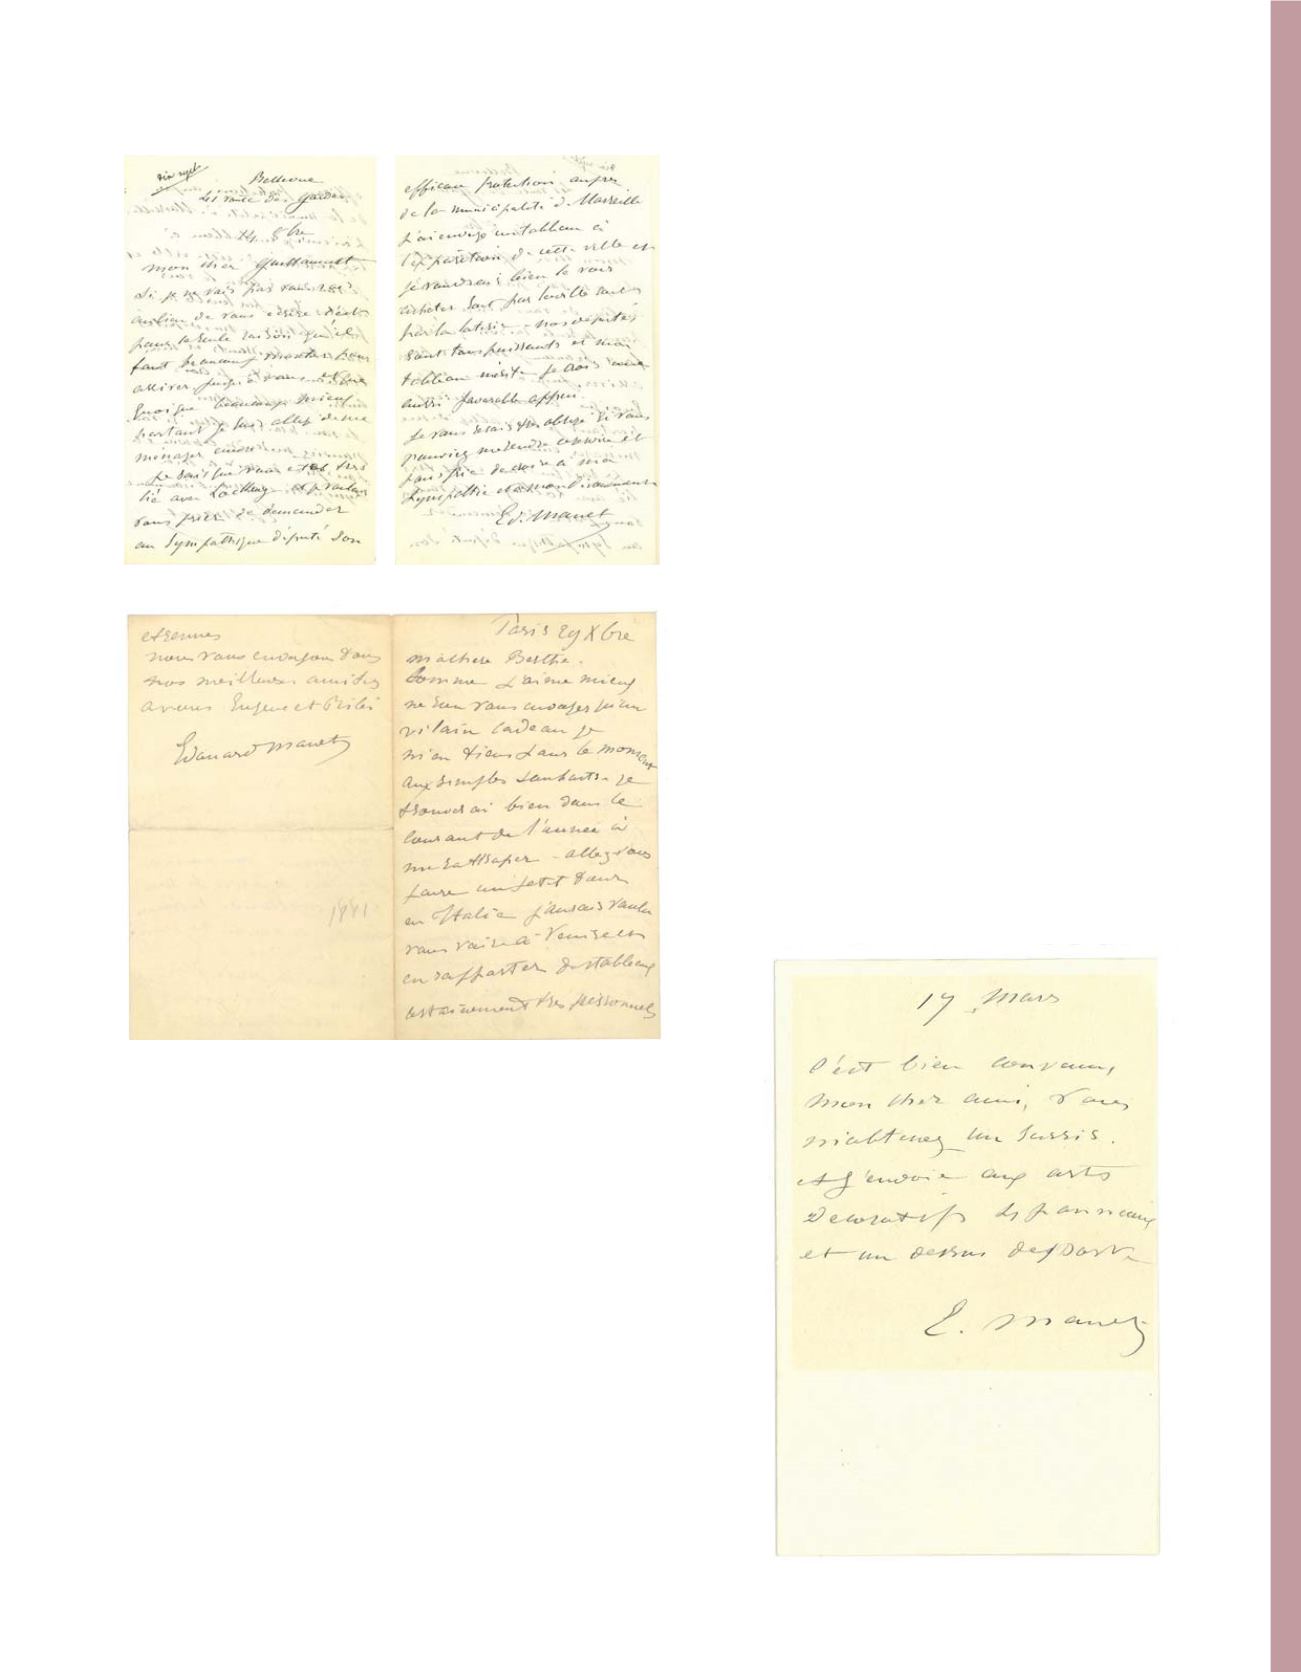 Bellevue
41 route des Gardes
mon cher Guillemet
Si je ne vais pas vous voir
au lieu de vous écrire c'est
pour la seule raison qu'il
faut beaucoup monter pour
arriver jusqu'à vous et que
quoique beaucoup mieux
portant je suis obligé de me
ménager encore
je sais que vous êtes très
lié avec Lockroy et voulais
vous prier de demander
au sympathique député son
efficace protection auprès
de la municipalité de Marseille
j'ai envoyé un tableau à
l'exposition de cette ville et
je voudrais bien le voir
acheter soit par la ville soit
par la loterie nos députés
sont tous puissants et mon
tableau mérite je crois
aussi favorable appui
je vous serais très obligé si vous
pouviez me rendre ce service et
vous prie de croire à ma
sympathie et à mon dévouement
Ed. Manet
etrennes
nous vous envoyons tous
nos meilleures amitiés
a vous Eugene et Bibi
Edouard Manet
1881
Paris 29 Xbre
ma chere Berthe.
Comme j'aime mieux
ne rien vous envoyer qu'un
vilain cadeau je
m'en tiens dans le moment
aux simples souhaits - je
trouverai bien dans le
courant de l'année à
me rattraper - allez vous
faire un petit tour
en Italie j'aurais voulu
vous voir à Venise et
en rapporter des tableaux
certainement très personnels
17 Mars
C'est bien convenu,
mon cher ami, vous
m'obtenez un sursis.
et j'envoie aux arts
decoratifs les panneaux
et un dessus de porte
E. Manet